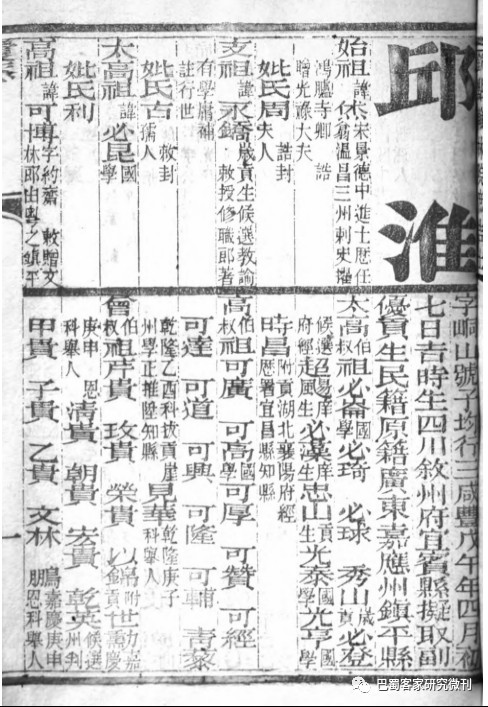 邱淮
字峒山號子均行三咸豐戊午年四月初
七日吉時生四川敘州府宜賓縣擬取副
優貢生民籍原籍廣東嘉應州鎮平縣
始祖諱杰宋景德中進士歷任
溫昌三州刺史擢
鴻臚寺卿 誥
贈光祿大夫
妣氏周 誥封夫人
支祖諱永鎬歲貢生候選教諭
敕授修職郎著
有學庸補
註行世
妣氏古 敕封孺人
太高祖諱必昆國學
妣氏利
高祖諱可博字約齋 敕贈文
林郎由粵之鎮平
太高伯叔祖必崙國學 必琦 必球 秀山歲貢 必登
候選府經 超易庠生 起風庠生 必藻 忠山貢生 光泰國學 光亨國學
時昌附貢湖北襄陽府經
歷署宜昌縣知縣
高伯叔祖可廣 可高國學 可厚 可贊 可經
可達 可道 可興 可隆 可輔 青藜
乾隆乙酉科拔貢崖
州學正推陞知縣
見華乾隆庚子
科舉人
曾伯叔祖芹貴 玫貴 榮貴 世勳嘉慶
庚申 恩
科舉人
清貴 朝貴 宏貴 乾英候選
州判
甲貴 子貴 乙貴 文林 鵬嘉慶庚申
恩科舉人
一
巴蜀客家研究微刊